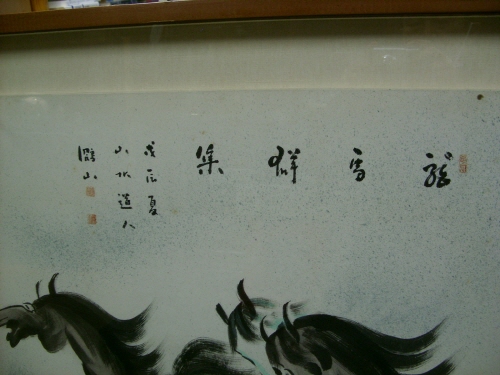 龍馬群集
戊辰夏
山水道人